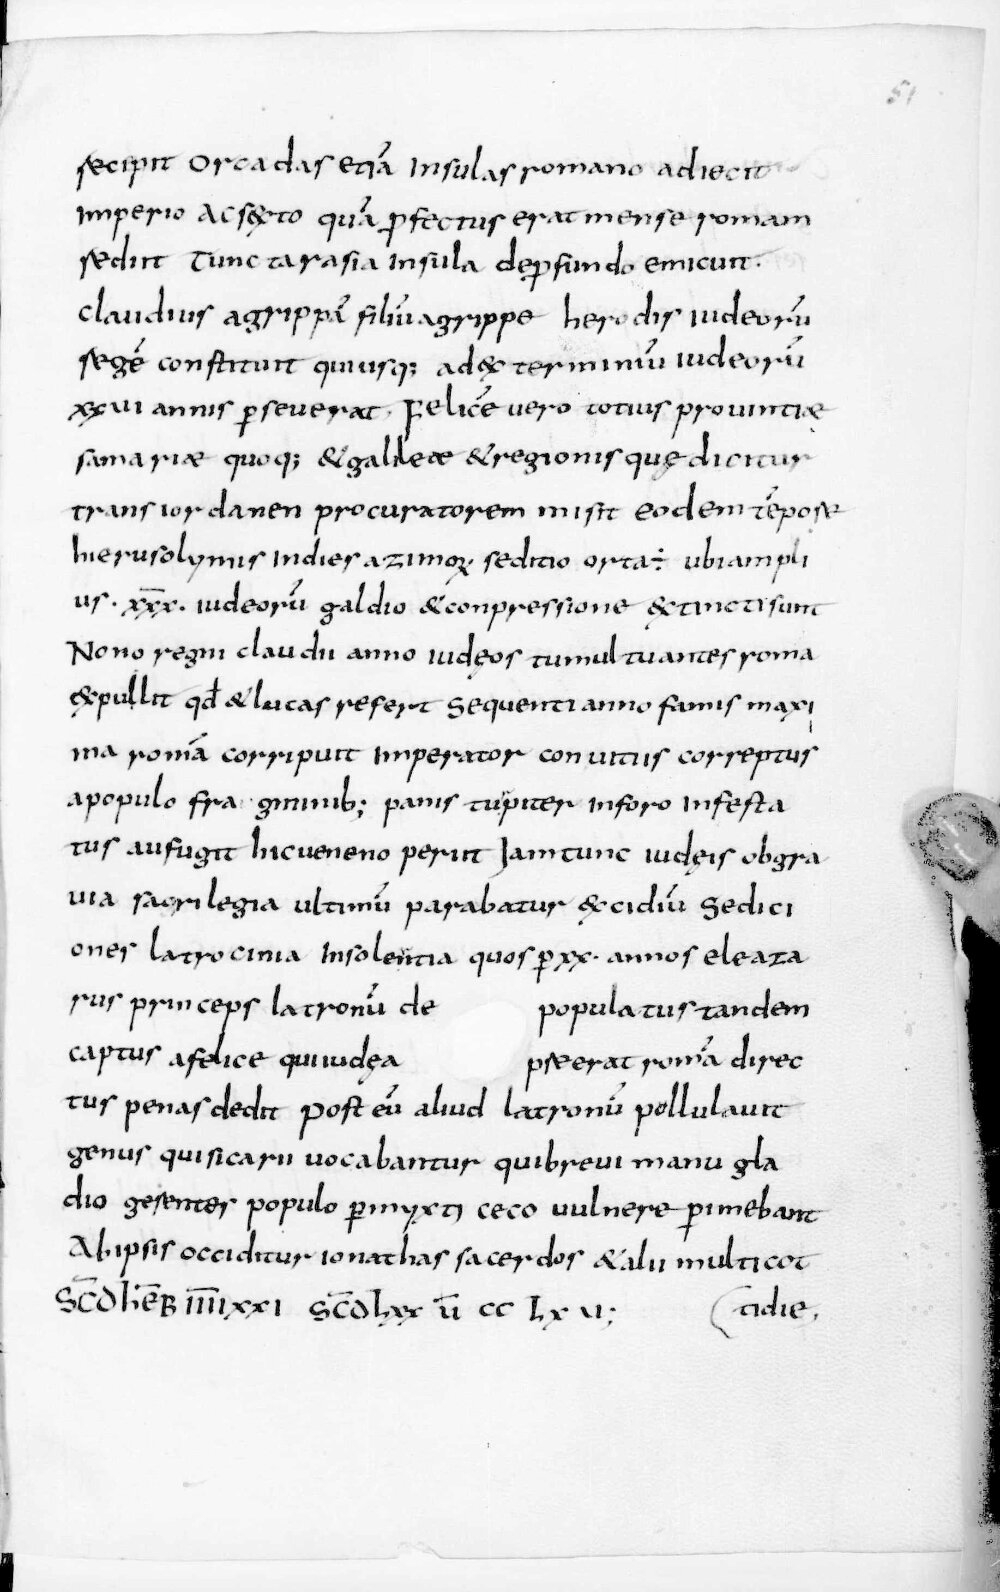 51
recipit Orcadas etiā Insulas romano adiecit
Imperio Ac sexto quā pfectus erat mense romam
redut Tunc tarasia Insula de pfundo emicuit.
claudius agrippā filiū agrippe herodis iudeorū
regē constituit qui usq; ad exterminiū iudeorū
xxvi annis pseverat. Felicē vero totius provintiæ
samariæ quoq; & galileæ & regionis quę dicitur
trans iordanen procuratorem misit eodem tēpore
hierusolymis Indies azimoꝝ. seditio orta÷ ubi ampli
us. x̅x̅x̅. iudeorū galdio & conpressione extincti sunt
Nono regni claudii anno iudęos tumultuantes roma
expullit qđ & lucas refert Sequenti anno famis maxi
ma romā corripuit Imperator convitiis correptus
apopulo fragminib; panis tupiter Inforo Infesta
tus aufugit hic veneno periit Jam tunc iudęis ob gra
via sacrilegia ultimū parabatur excidiū Sedici
ones latrocinia Insolentia quos p xx. annos eleaza
rus princeps latronū de populatus tandem
captus afelice qui iudęa preerat romā direc
tus penas dedit Post eū aliud latronū pollulavit
genus qui sicarii vocabantur qui brevi manu gla
dio gerenter populo pmyxti ceco vulnere pimebant
Ab ipsis occiditur ionathas sacerdos & alii multi cot
tidie.
SC̅D HEB̅ I̅I̅I̅I̅xxi SC̅D lxx V̅ cc lxvi;